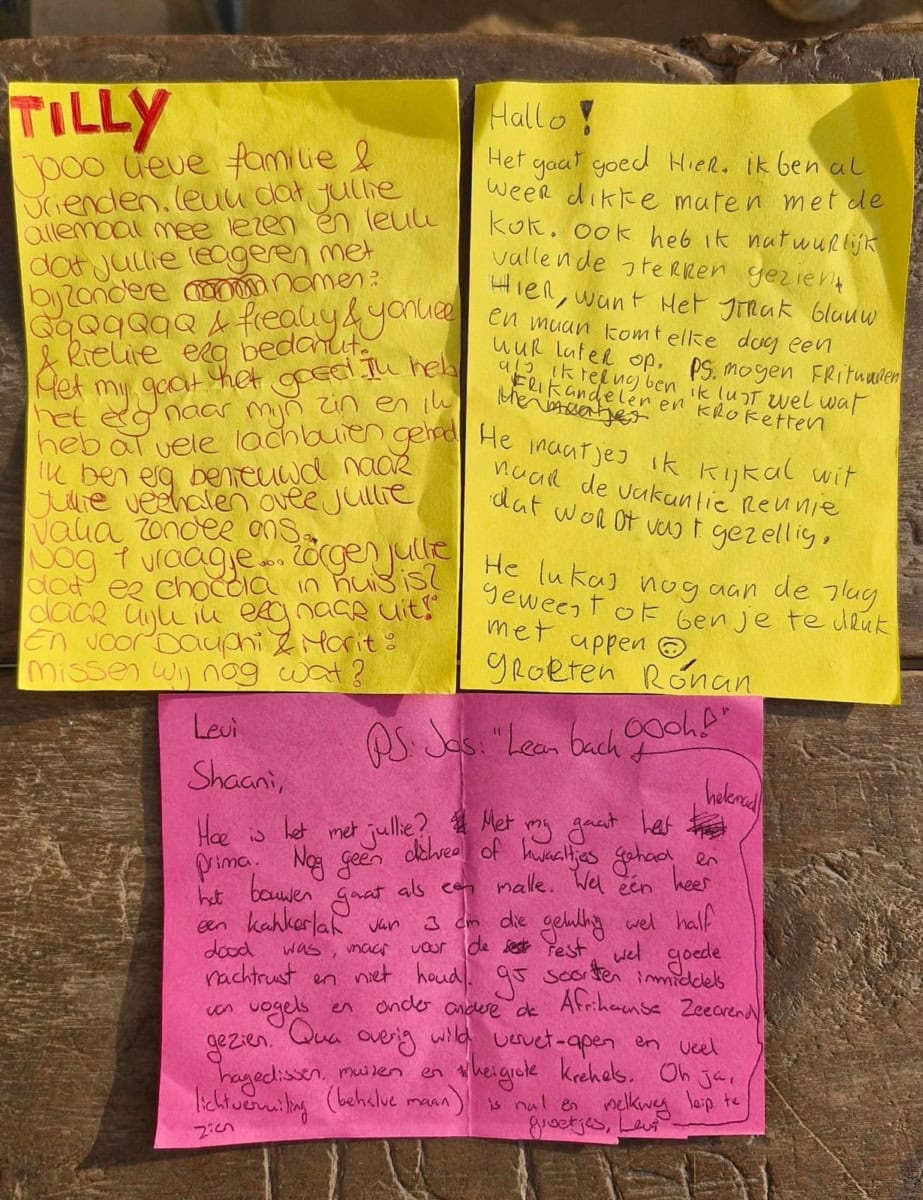 TILLY
Jooo lieve familie &
vrienden. leuk dat jullie
allemaal mee lezen en leuk
dat jullie reageren met
bijzondere namen:
QqQqQqQ & freaky & yankee
& Rickie erg bedankt.
Met mij gaat het goed. Ik heb
het erg naar mijn zin en ik
heb al vele lachbuien gehad
ik ben erg benieuwd naar
jullie verhalen over jullie
vaka zonder ons.
Nog 1 vraagje... zorgen jullie
dat er chocola in huis is?
daar kijk ik erg naar uit!
En voor Dauphi & Marit:
missen wij nog wat?
Hallo!
Het gaat goed Hier. ik ben al
weer dikke maten met de
kok. ook heb ik natuurlijk
vallende sterren gezien
Hier, want Het strak blauw
en maan komt elke dag een
uur later op. PS. mogen Frituuren
als ik terug ben ik lust wel wat
FRikandelen en KRoketten
He maatjes ik kijk al uit
naar de vakantie Rennie
dat wordt vast gezellig.
He lukas nog aan de slag
geweest of ben je te druk
met appen
groeten Rónan
Levi
PS: Jos: "Lean back oooh!"
Shaani,
Hoe is het met jullie? Met mij gaat het helemaal
prima. Nog geen diahree of kwaaltjes gehad en
het bouwen gaat als een malle. Wel één keer
een kakkerlak van 3 cm die gelukkig wel half
dood was, maar voor de rest wel goede
nachtrust en niet koud. 95 soorten inmiddels
van vogels en onder andere de Afrikaanse Zeearend
gezien. Qua overig wild vervet-apen en veel
hagedissen, muizen en heigrote krekels. Oh ja,
lichtvervuiling (behalve maan) is nul en melkweg leip te
zien groetjes, Levi